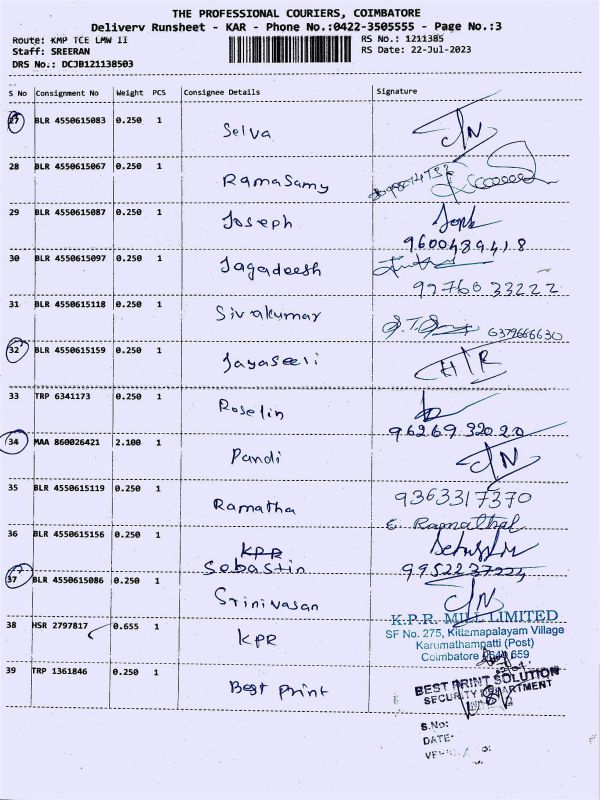 THE PROFESSIONAL COURIERS, COIMBATORE
Deliverv Runsheet - KAR - Phone No.:0422-3505555 - Page No.:3
Route: KMP TCE LMW II
RS No.: 1211385
Staff: SREERAN
RS Date: 22-Jul-2023
DRS No.: DCJB121138503
S No Consignment No Weight PCS Consignee Details Signature
27 BLR 4550615083 0.250 1 Selva
28 BLR 4550615067 0.250 1 RamaSamy
29 BLR 4550615087 0.250 1 Joseph
9600489418
30 BLR 4550615097 0.250 1 Jagadeesh
9976033222
31 BLR 4550615118 0.250 1 Sivakumar
6379666630
32 BLR 4550615159 0.250 1 Jayaseeli
33 TRP 6341173 0.250 1 Roselin
9626932020
34 MAA 860026421 2.100 1 Pandi
35 BLR 4550615119 0.250 1 Ramatha 9363317370
E. Ramathal
36 BLR 4550615156 0.250 1 KPR
Sebastin
37 BLR 4550615086 0.250 1 Srinivasan
38 HSR 2797817 0.655 1 KPR
K.P.R. MILL LIMITED
SF No. 275, Kittamapalayam Village
Karumathampatti (Post)
Coimbatore 641 659
39 TRP 1361846 0.250 1 Best Print
BEST PRINT SOLUTION
SECURITY DEPARTMENT
S.No:
DATE: